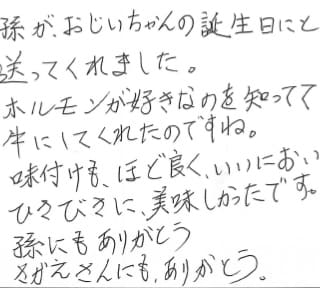 孫が、おじいちゃんの誕生日にと
送ってくれました。
ホルモンが好きなのを知ってて
牛にしてくれたのですね。
味付けも、ほど良く、いいにおい
ひさびさに、美味しかったです。
孫にもありがとう
さかえさんにも、ありがとう。